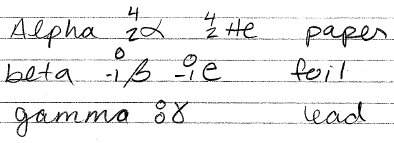 Alpha ⁴₂α ⁴₂He paper
beta ⁰₋₁β ⁰₋₁e foil
gamma ⁰₀γ lead